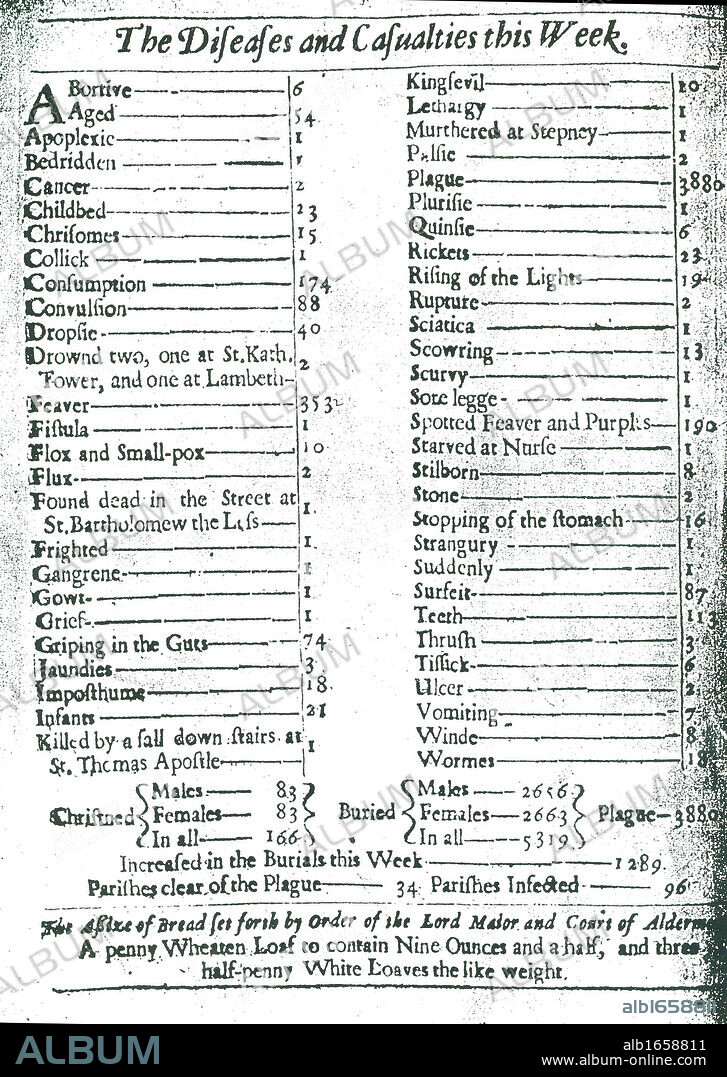 The Diſeaſes and Caſualties this Week.
ABortive 6
Aged 54
Apoplexie 1
Bedridden 1
Cancer 2
Childbed 23
Chriſomes 15
Collick 1
Conſumption 174
Convulſion 88
Dropſie 40
Drownd two, one at St. Kath.
Tower, and one at Lambeth 2
Feaver 353
Fiſtula 1
Flox and Small-pox 10
Flux 2
Found dead in the Street at
St. Bartholomew the Leſs 1
Frighted 1
Gangrene 1
Gowt 1
Grief 1
Griping in the Guts 74
Jaundies 3
Impoſthume 18
Infants 21
Killed by a fall down ſtairs at
St. Thomas Apoſtle 1
Kingſevil 10
Lethargy 1
Murthered at Stepney 1
Palſie 2
Plague 3880
Pluriſie 1
Quinſie 6
Rickets 23
Riſing of the Lights 19
Rupture 2
Sciatica 1
Scowring 13
Scurvy 1
Sore legge 1
Spotted Feaver and Purples 190
Starved at Nurſe 1
Stilborn 8
Stone 2
Stopping of the ſtomach 16
Strangury 1
Suddenly 1
Surfeit 87
Teeth 113
Thruſh 3
Tiſſick 6
Ulcer 2
Vomiting 7
Winde 8
Wormes 18
Chriſtned
Males 83
Females 83
In all 166
Buried
Males 2656
Females 2663
In all 5319
Plague 3880
Increaſed in the Burials this Week 1289.
Pariſhes clear of the Plague 34 Pariſhes Infected 96
The Aſſize of Bread ſet forth by Order of the Lord Maior and Court of Alderme
A penny Wheaten Loaf to contain Nine Ounces and a half, and three
half-penny White Loaves the like weight.
ALBUM
alb1658811
alb1658811
www.album-online.com